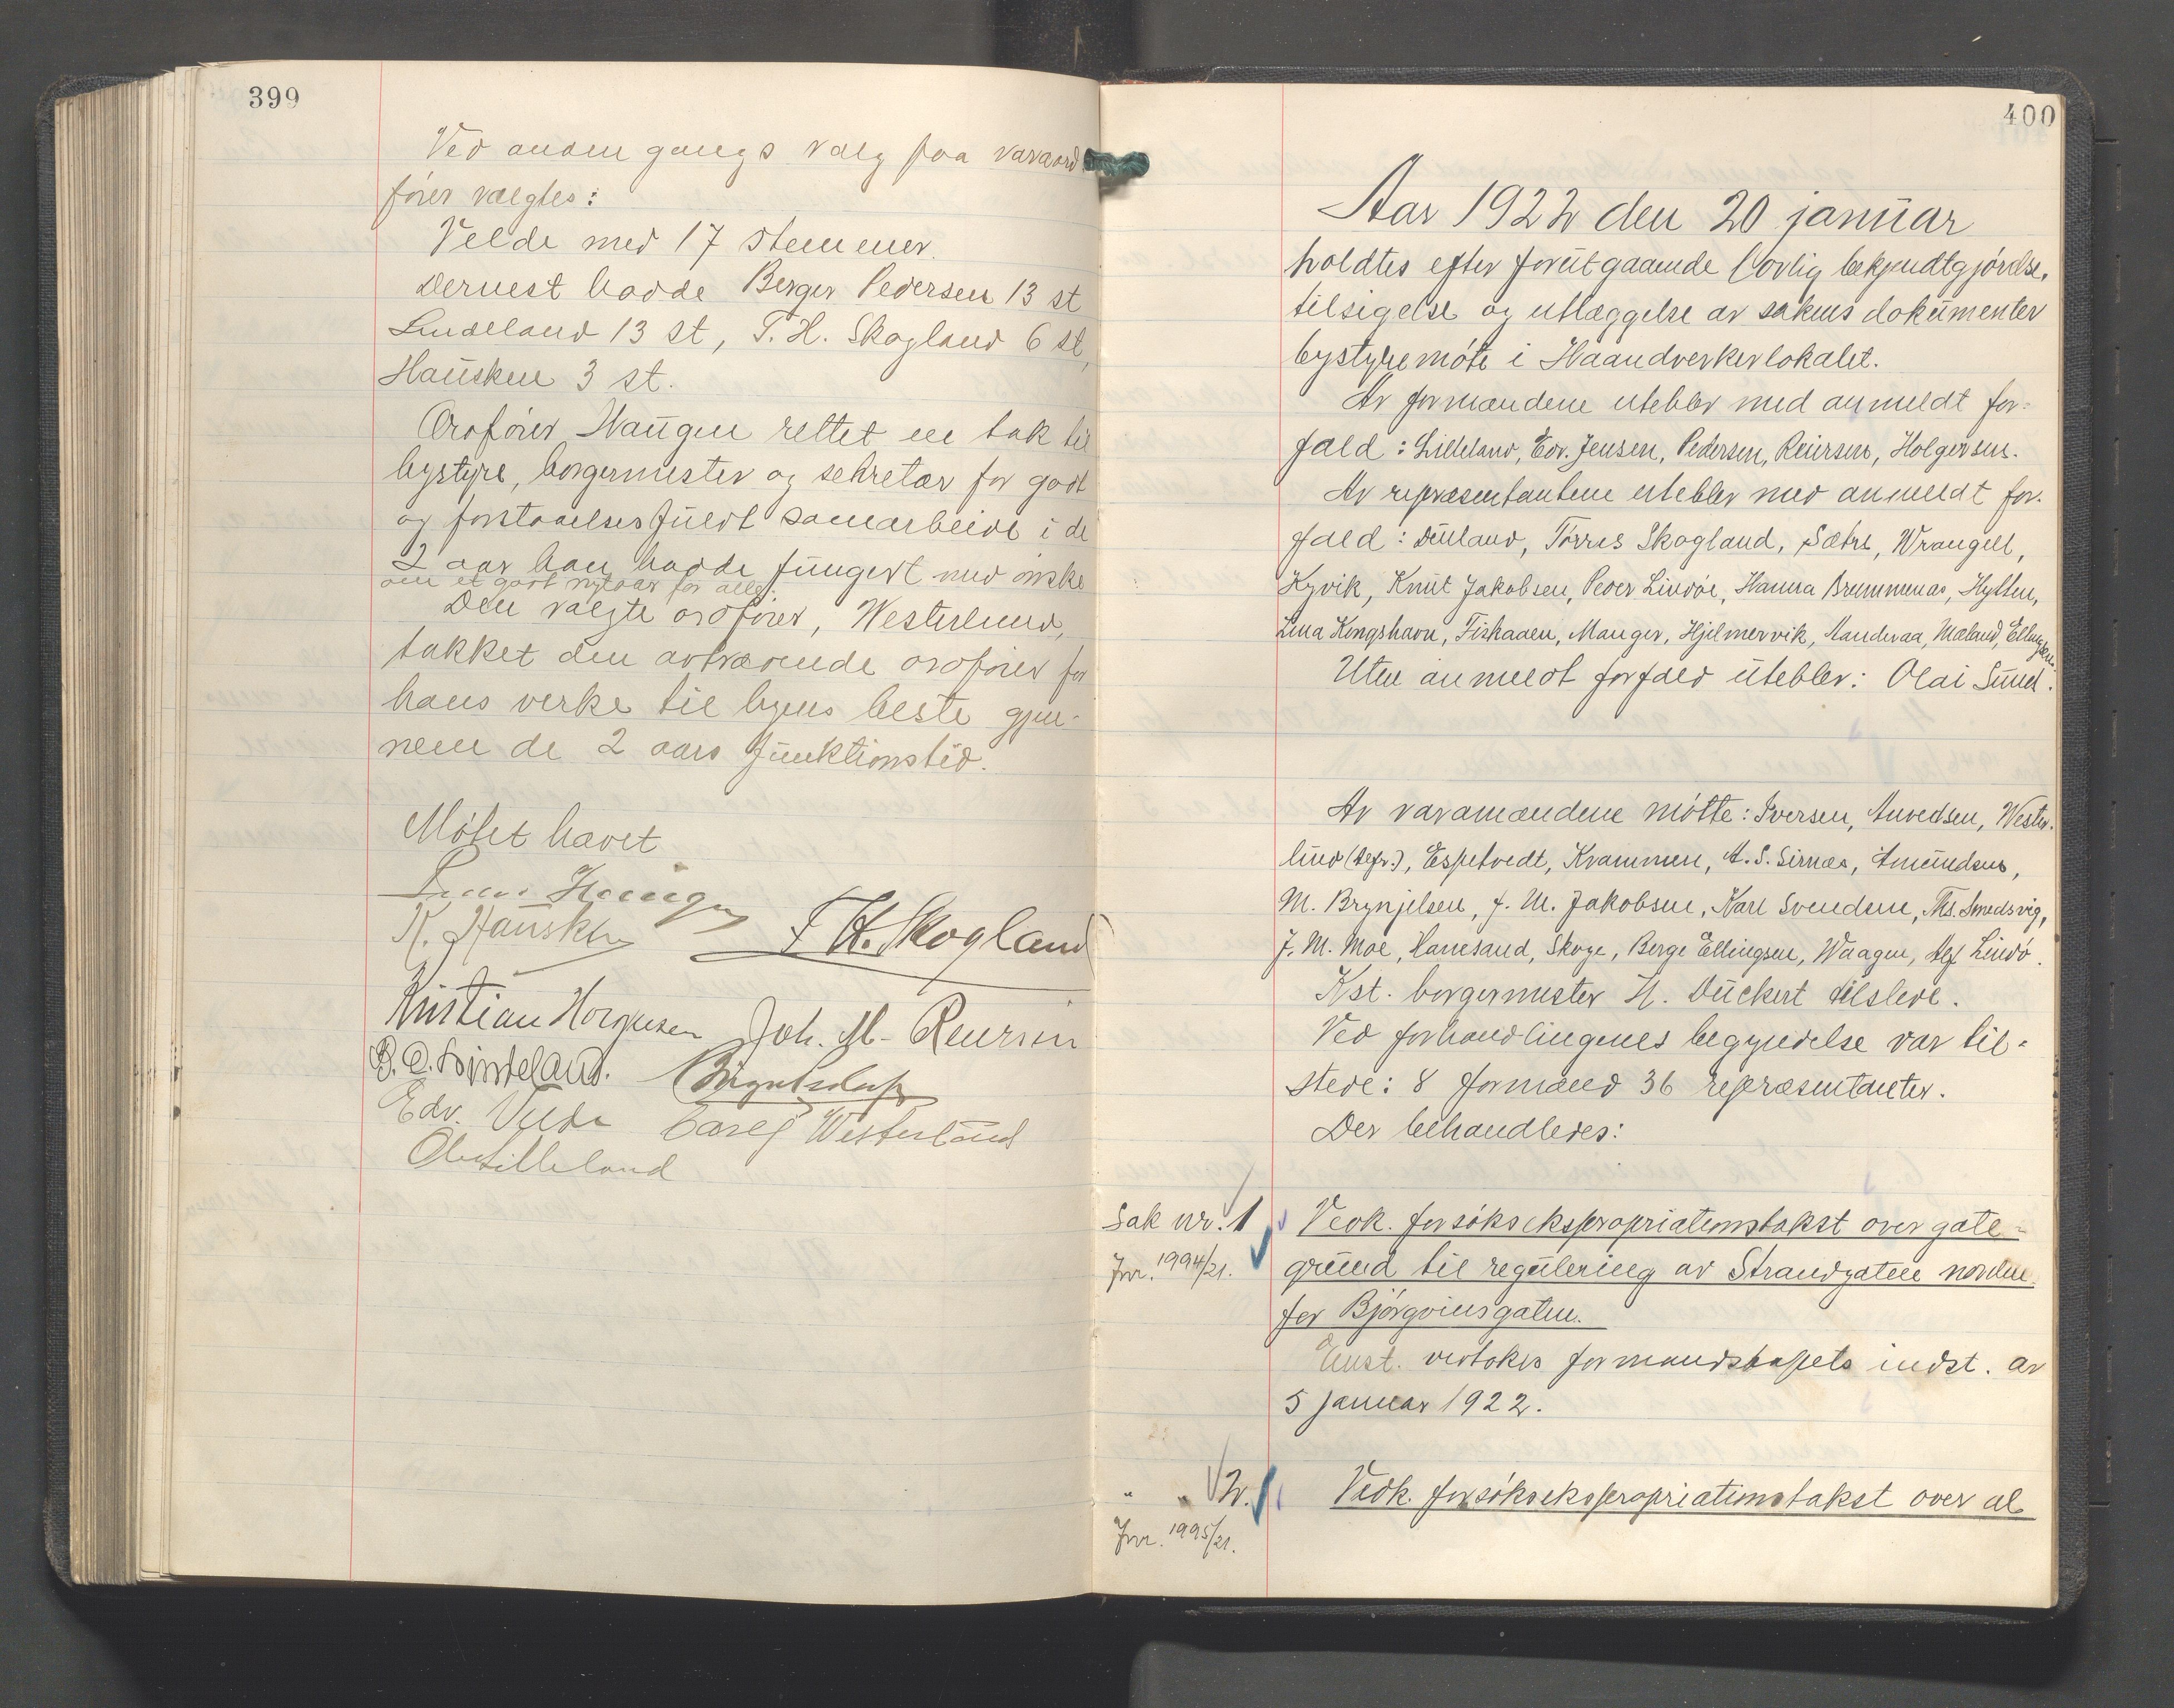 399
Ved anden gangs valg paa varaord
fører vælgtes:
Velde med 17 stemmer.
Dernest hadde Berger Pedersen 13 st
Lindeland 13 st, T. H. Skogland 6 st,
Hausken 3 st.
Ordfører Haugen rettet en tak til
bystyre, borgermester og sekretær for godt
og forstaaelsesfuldt samarbeide i de
2 aar han hadde fungert med ønske
om et godt nytaar for alle.
Den valgte ordfører, Westerlund,
takket den avtrædende ordfører for
hans verke til byens beste gjen-
nem de 2 aars funktionstid.
Møtet hævet
K. Hausken
T H. Skogland
Kristian Horgesen Joh. M. Reiersen
Edv. Velde Carl J Westerlund
Ole Lilleland
400
Aar 1922 den 20 januar
holdtes efter forutgaaende lovlig bekjendtgjørelse,
tilsigelse og utlæggelse av sakens dokumenter
bystyremøte i Haandverkerlokalet.
Av formændene uteblev med anmeldt for-
fald: Lilleland, Edv. Jensen, Pedersen, Reiersen, Holgersen.
Av repræsentantene uteblev med anmeldt for-
fald: Duland, Tørres Skogland, Sætre, Wrangell,
Kyvik, Knut Jakobsen, Peder Lindøe, Hanna Brummenæs, Hytten,
Lina Kongshavn, Fiskaaen, Manger, Hjelmervik, Sandvaa, Mæland, Ellingsen.
Uten anmeldt forfald uteblev: Olai Sund.
Av varamændene møtte: Iversen, Anvedsen, Wester-
lund (Aefr.), Espetvedt, Krammen, A. S. Sirnæs, Amundsen,
M. Brynjelsen, J. M. Jakobsen, Karl Svendsen, Ths. Smedsvig,
J. M. Moe, Hannesand, Skoge, Berge Ellingsen, Waagen, Agf Lindø.
Kst. borgermester H. Dückert tilstede.
Ved forhandlingenes begyndelse var til-
stede: 8 formænd 36 repræsentanter.
Der behandledes:
Sak nr. 1
Jnr. 1994/21.
Vedk. forsøksekspropriationstakst over gate-
grund til regulering av Strandgaten norden-
for Bjørgvinsgaten.
Enst. vedtokes formandskapets indst. av
5 januar 1922.
" " 2.
Jnr. 1995/21.
Vedk. forsøksekspropriationstakst over al